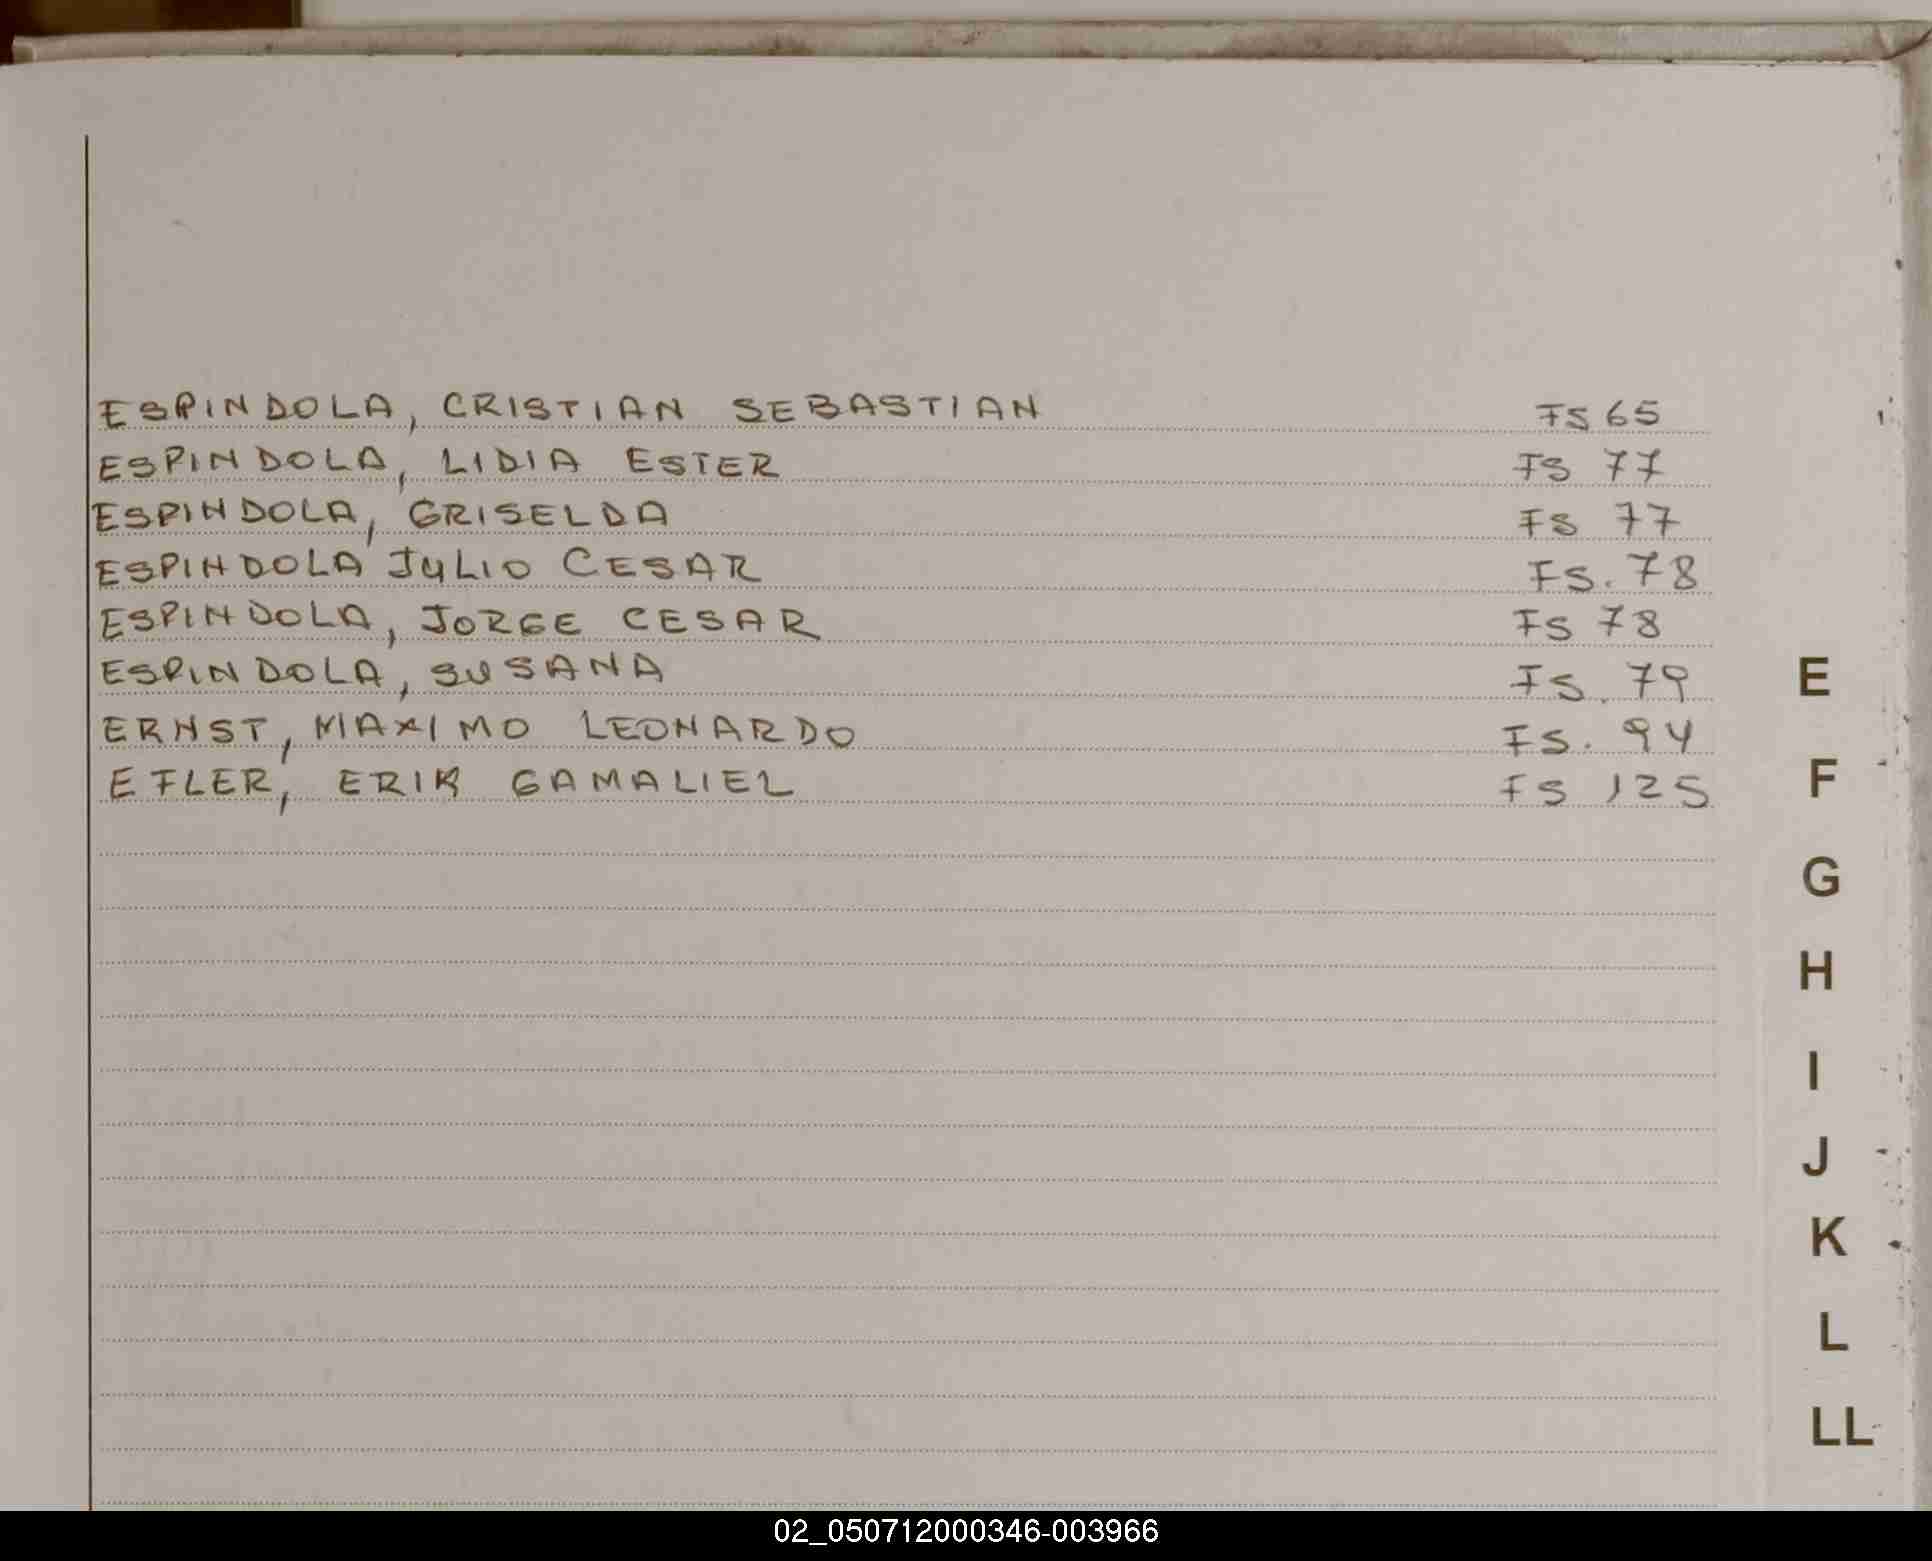 ESPINDOLA, CRISTIAN SEBASTIAN FS 65
ESPINDOLA, LIDIA ESTER FS 77
ESPINDOLA, GRISELDA FS 77
ESPINDOLA JULIO CESAR FS. 78
ESPINDOLA, JORGE CESAR FS 78
ESPINDOLA, SUSANA FS. 79
ERNST, MAXIMO LEONARDO FS. 94
EFLER, ERIK GAMALIEL FS 125
E
F
G
H
I
J
K
L
LL
02_050712000346-003966